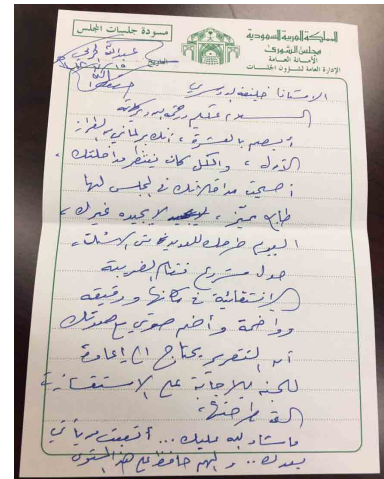 المملكة العربية السعودية
مجلس الشورى
الأمانة العامة
الإدارة العامة لشؤون الجلسات
مسودة جلسات المجلس
التاريخ
الأستاذ خليفة
السلام عليكم ورحمة الله وبركاته
أبصم بالعشرة، أنك برلماني بالطراز
الأول، والكل كان ينتظر مداخلتك،
أصبحت مداخلاتك في المجلس لها
طابع مميز، لا يجيده غيرك،
اليوم طرحك للعديد من الأسئلة،
حول مشروع نظام الضريبة
الانتقائية في مكانها ودقيقة
وواضحة وأضم صوتي مع صوتك
أن التقرير يحتاج إلى إعادة
للجنة للإجابة على الاستفسارات
التي طرحتها،
ماشاء الله عليك... أتعبت من يأتي
بعدك... حافظ على هذا المستوى